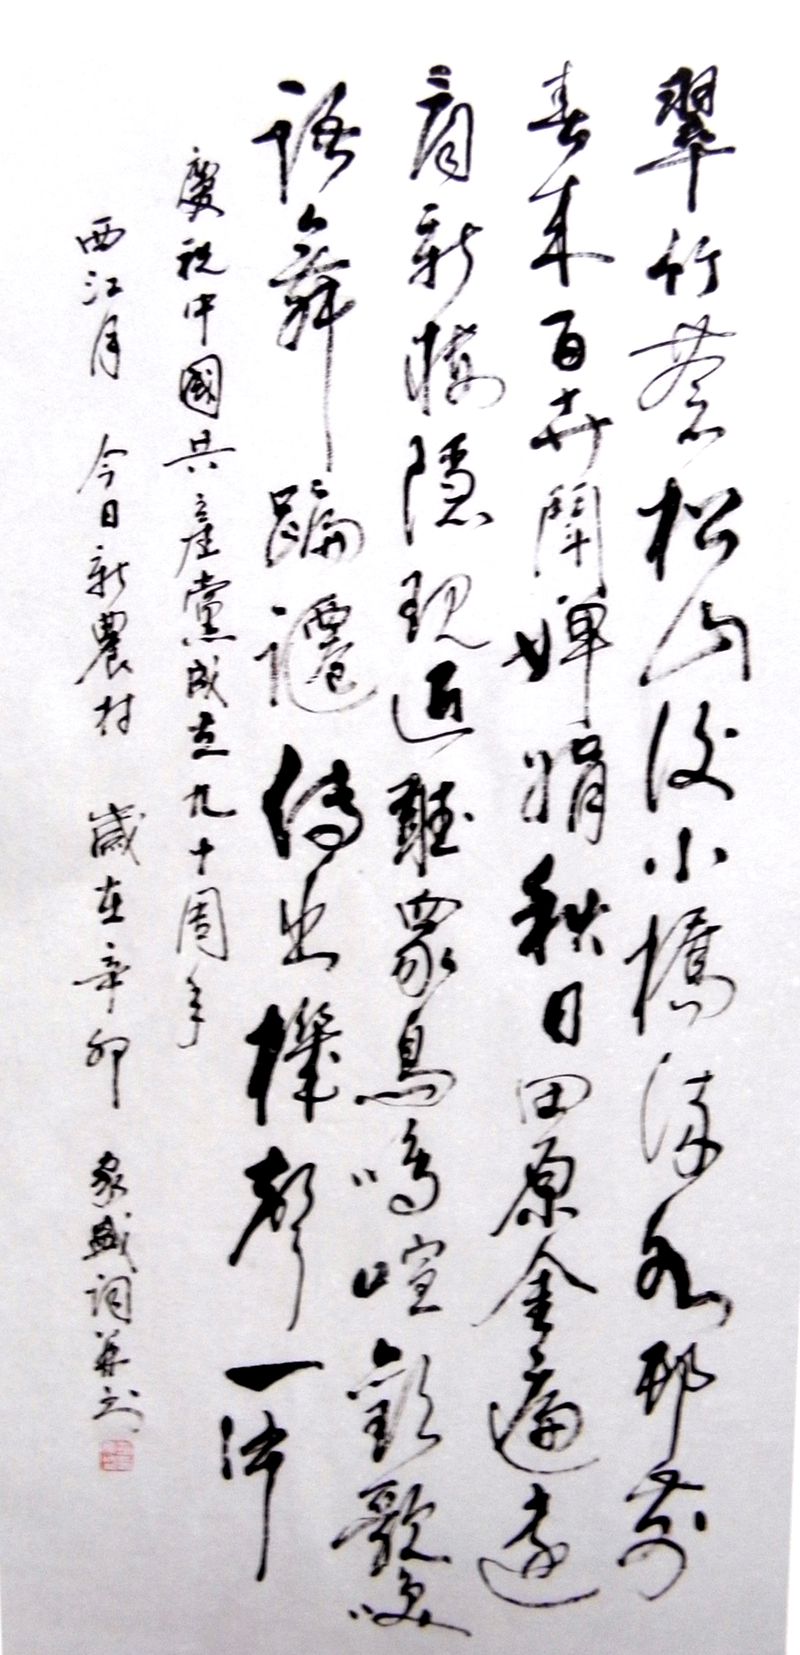 翠竹蒼松山後小橋流水邨前
春来百卉鬥嬋娟秋日田原金遍遠
看新樓隱現近聽衆鳥鳴喧歡歌笑
語舞蹁躚傳出機聲一片
慶祝中國共產黨成立九十周年
西江月 今日新農村 歲在辛卯 家盛詞并书